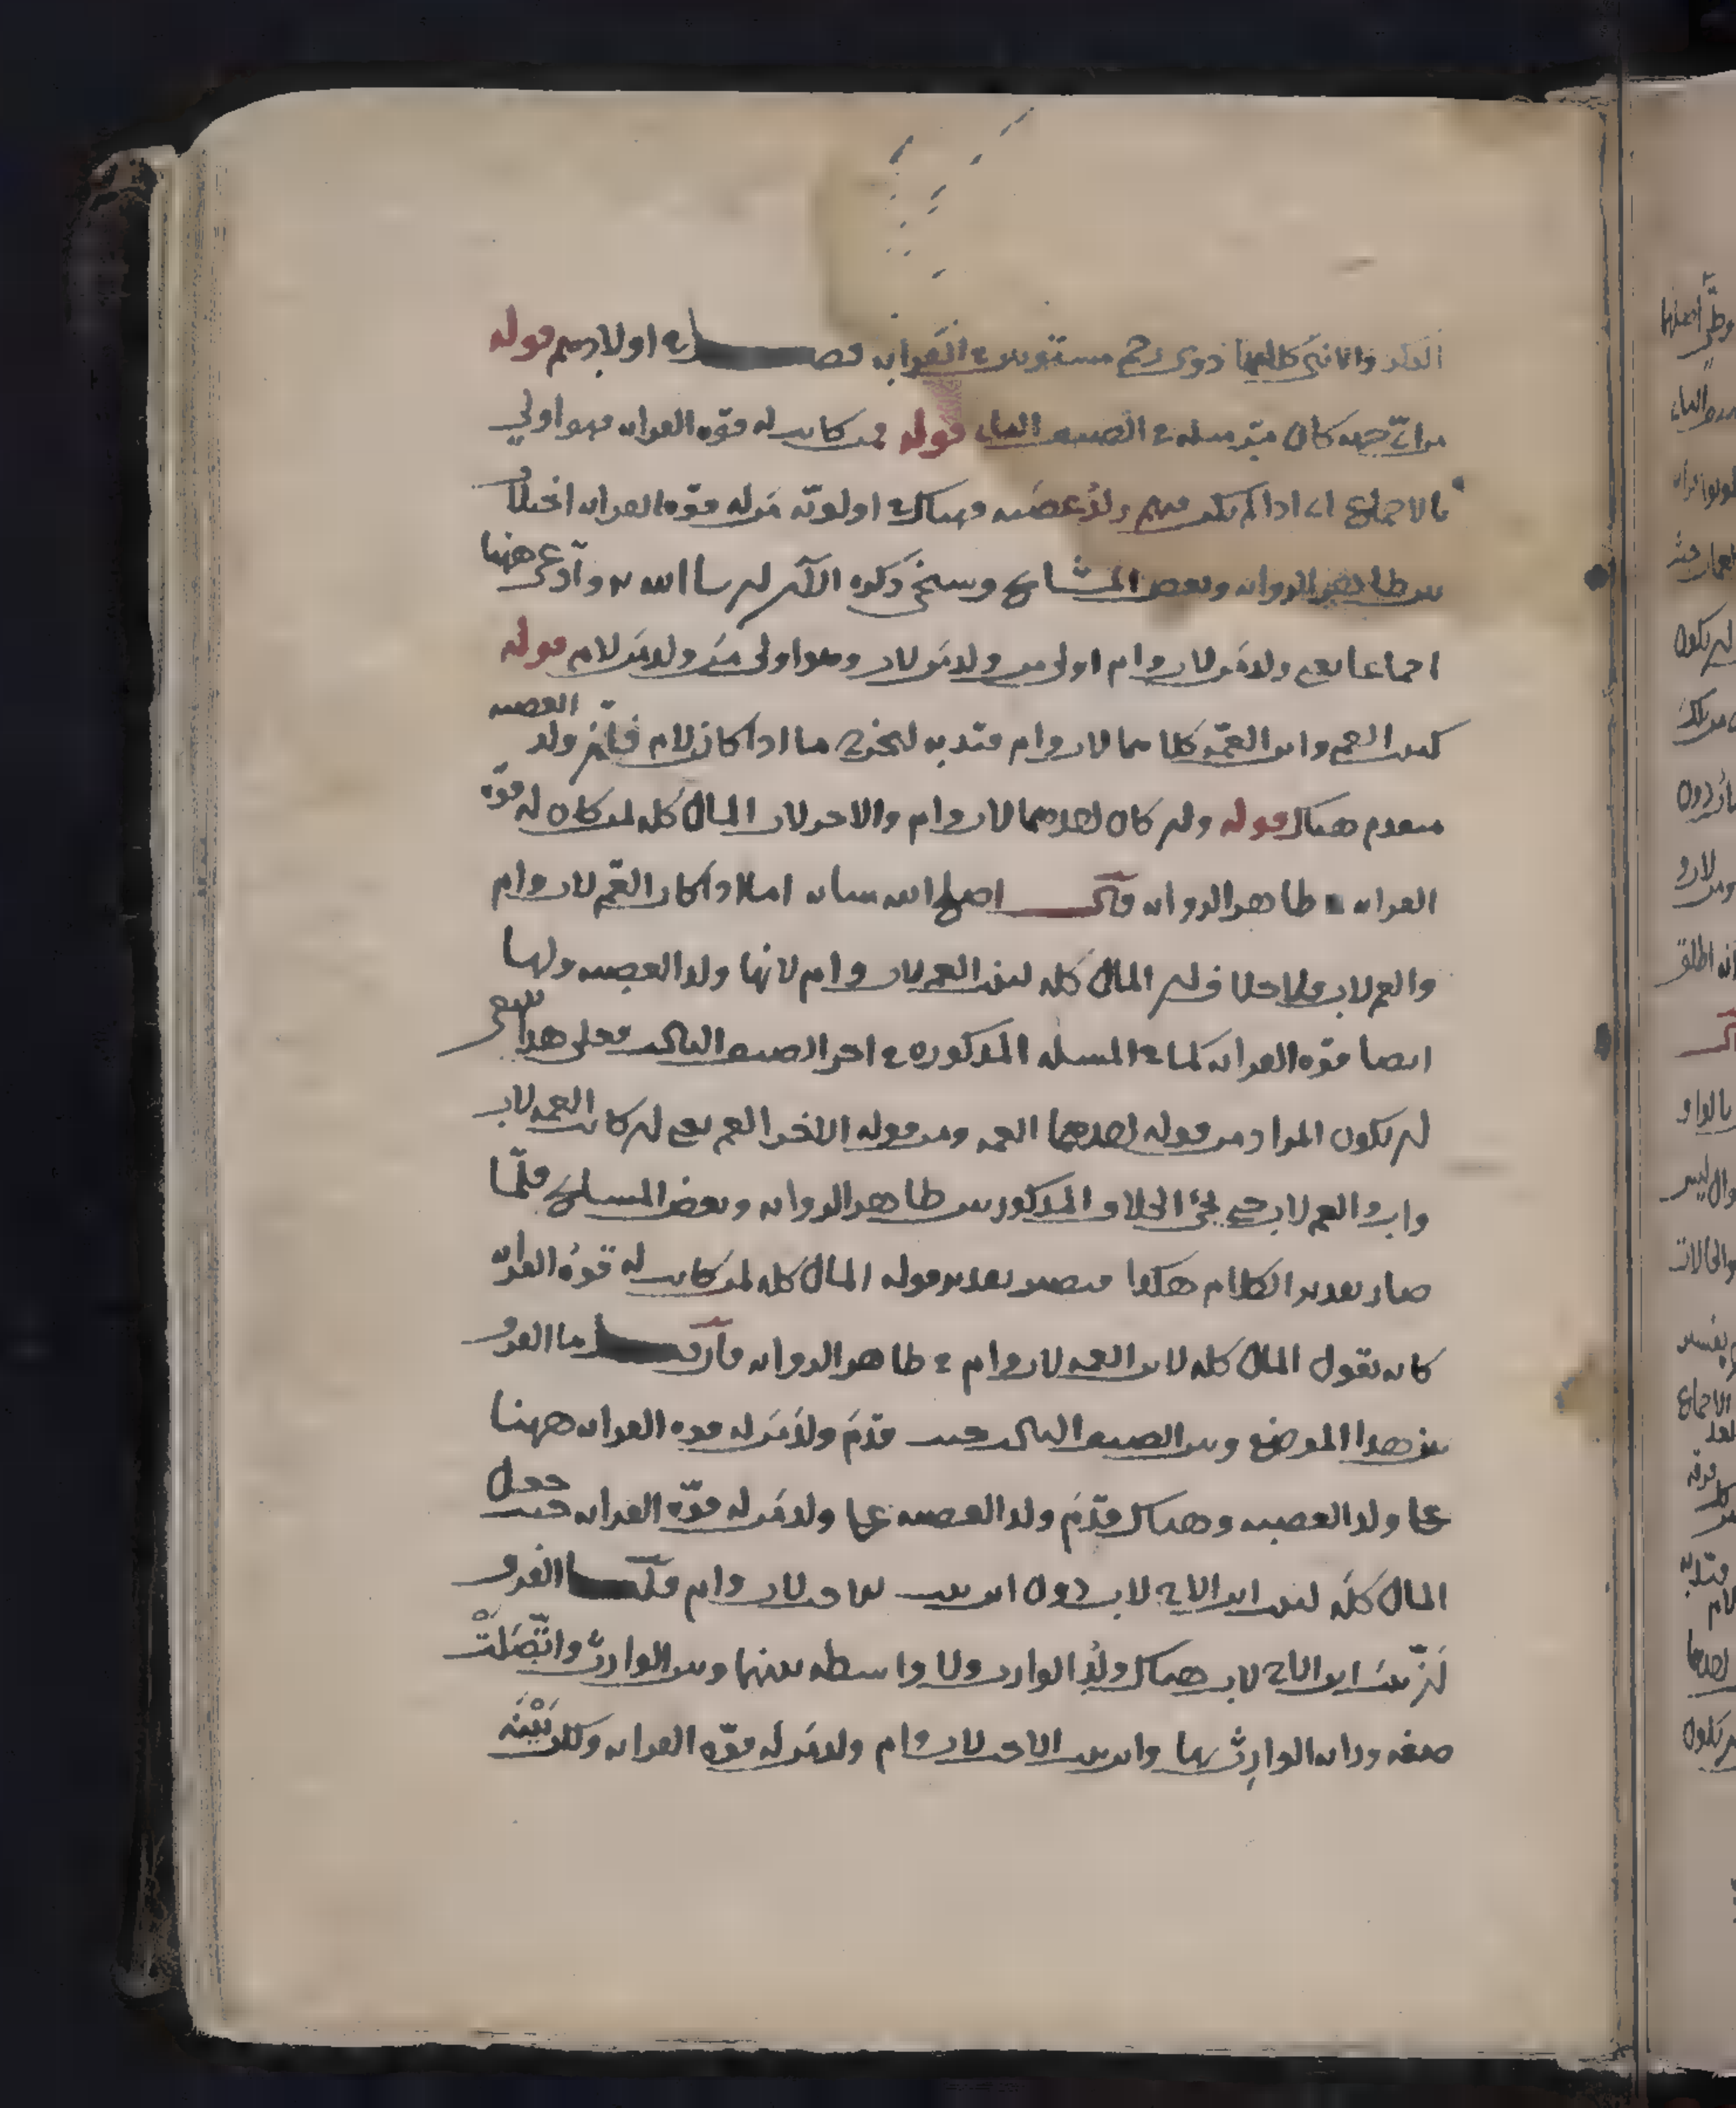 الذكر والانثى كلاهما ذوى رحم مستويين في القرابة فصل في اولادهم قوله
من اي جهة كان مر مثله في الصنف الثاني قوله فمن كانت له قوة القرابة فهو اولى
بالاجماع اي اذا لم يكن فيهم ولد عصبة وهناك في اولوية من له قوة القرابة اختلاف
بين ظاهر الرواية وبعض المشايخ وسيجئ ذكره الآن ان شا الله تع وادعى ههنا
اجماعا يعني ولد من لاب وام اولى من ولد من لاب وهو اولى من ولد من لام قوله
كبنت العم وابن العمة كلاهما لاب وام قيد به ليخرج ما اذا كانا لام فان ولد العصبة
منعدم هناك قوله وان كان احدهما لاب وام والاخر لاب المال كله لمن كان له قوة
القرابة في ظاهر الرواية قلت اصلح الله شانه اما اذا كان العم لاب وام
والعمة لاب فلا خلاف في ان المال كله لبنت العم لاب وام لانها ولد العصبة ولها
ايضا قوة القرابة كما في المسئلة المذكورة في اخر الصنف الثالث فعلى هذا ينبغي
ان يكون المراد من قوله احدهما العمة ومن قوله الاخر العم يعني ان كانت العمة لاب
وام والعم لاب حتى يجئ الخلاف المذكور بين ظاهر الرواية وبعض المشايخ فلما
صار تقدير الكلام هكذا فيصير تقدير قوله المال كله لمن كانت له قوة القرابة
كانه يقول المال كله لابن العمة لاب وام في ظاهر الرواية فان قيل ما الفرق
بين هذا الموضع وبين الصنف الثالث حيث قدم ولد من له قوة القرابة ههنا
على ولد العصبة وهناك قدم ولد العصبة على ولد من له قوة القرابة حيث جعل
المال كله لبنت ابن الاخ لاب دون ابن بنت الاخ لاب وام قلنا الفرق
ان بنت ابن الاخ لاب هناك ولد الوارث ولا واسطة بينها وبين الوارث واتصلت
صفة وراثة الوارث بها وابن بنت الاخت لاب وام ولد من له قوة القرابة ولكن بينه